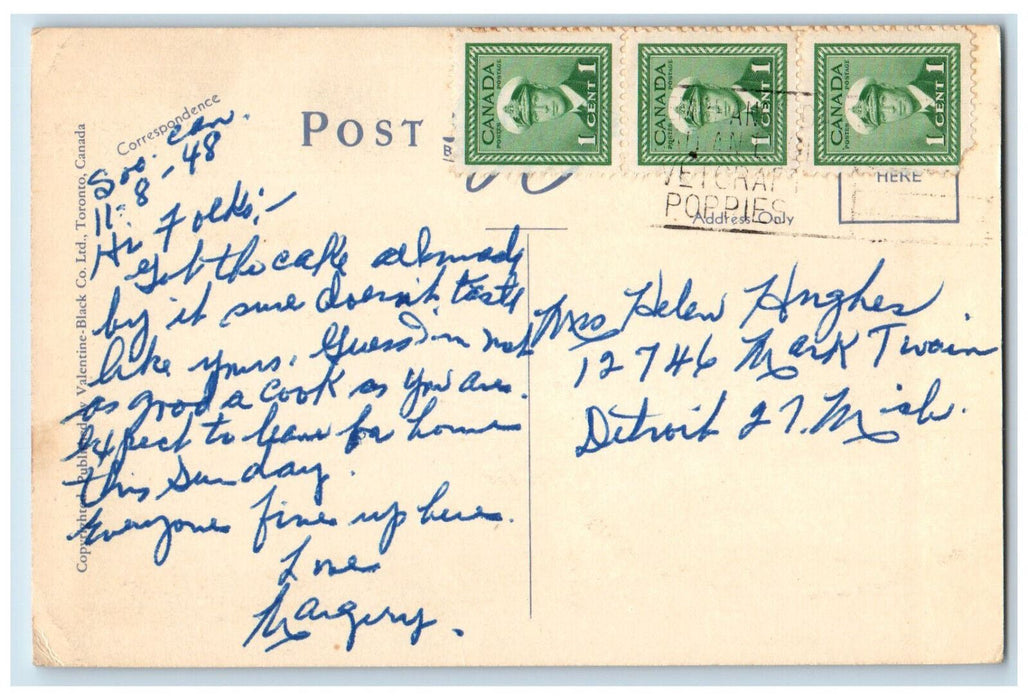 Correspondence
POST
Copyright Valentine-Black Co. Ltd., Toronto, Canada
CANADA
POSTAGE
1 CENT 1
CANADA
POSTAGE
1 CENT 1
CANADA
POSTAGE
1 CENT 1
HERE
VETCRAFT
POPPIES
Address Only
Soo. Can.
11-8-48
Hi Folks;-
Got the cake all made
by it sure doesn't taste
like yours. Guess I'm not
as good a cook as you are.
Expect to leave for home
this Sunday.
Everyone fine up here.
Love
Margery.
Mrs Helen Hughes
12746 Mark Twain
Detroit 27, Mich.